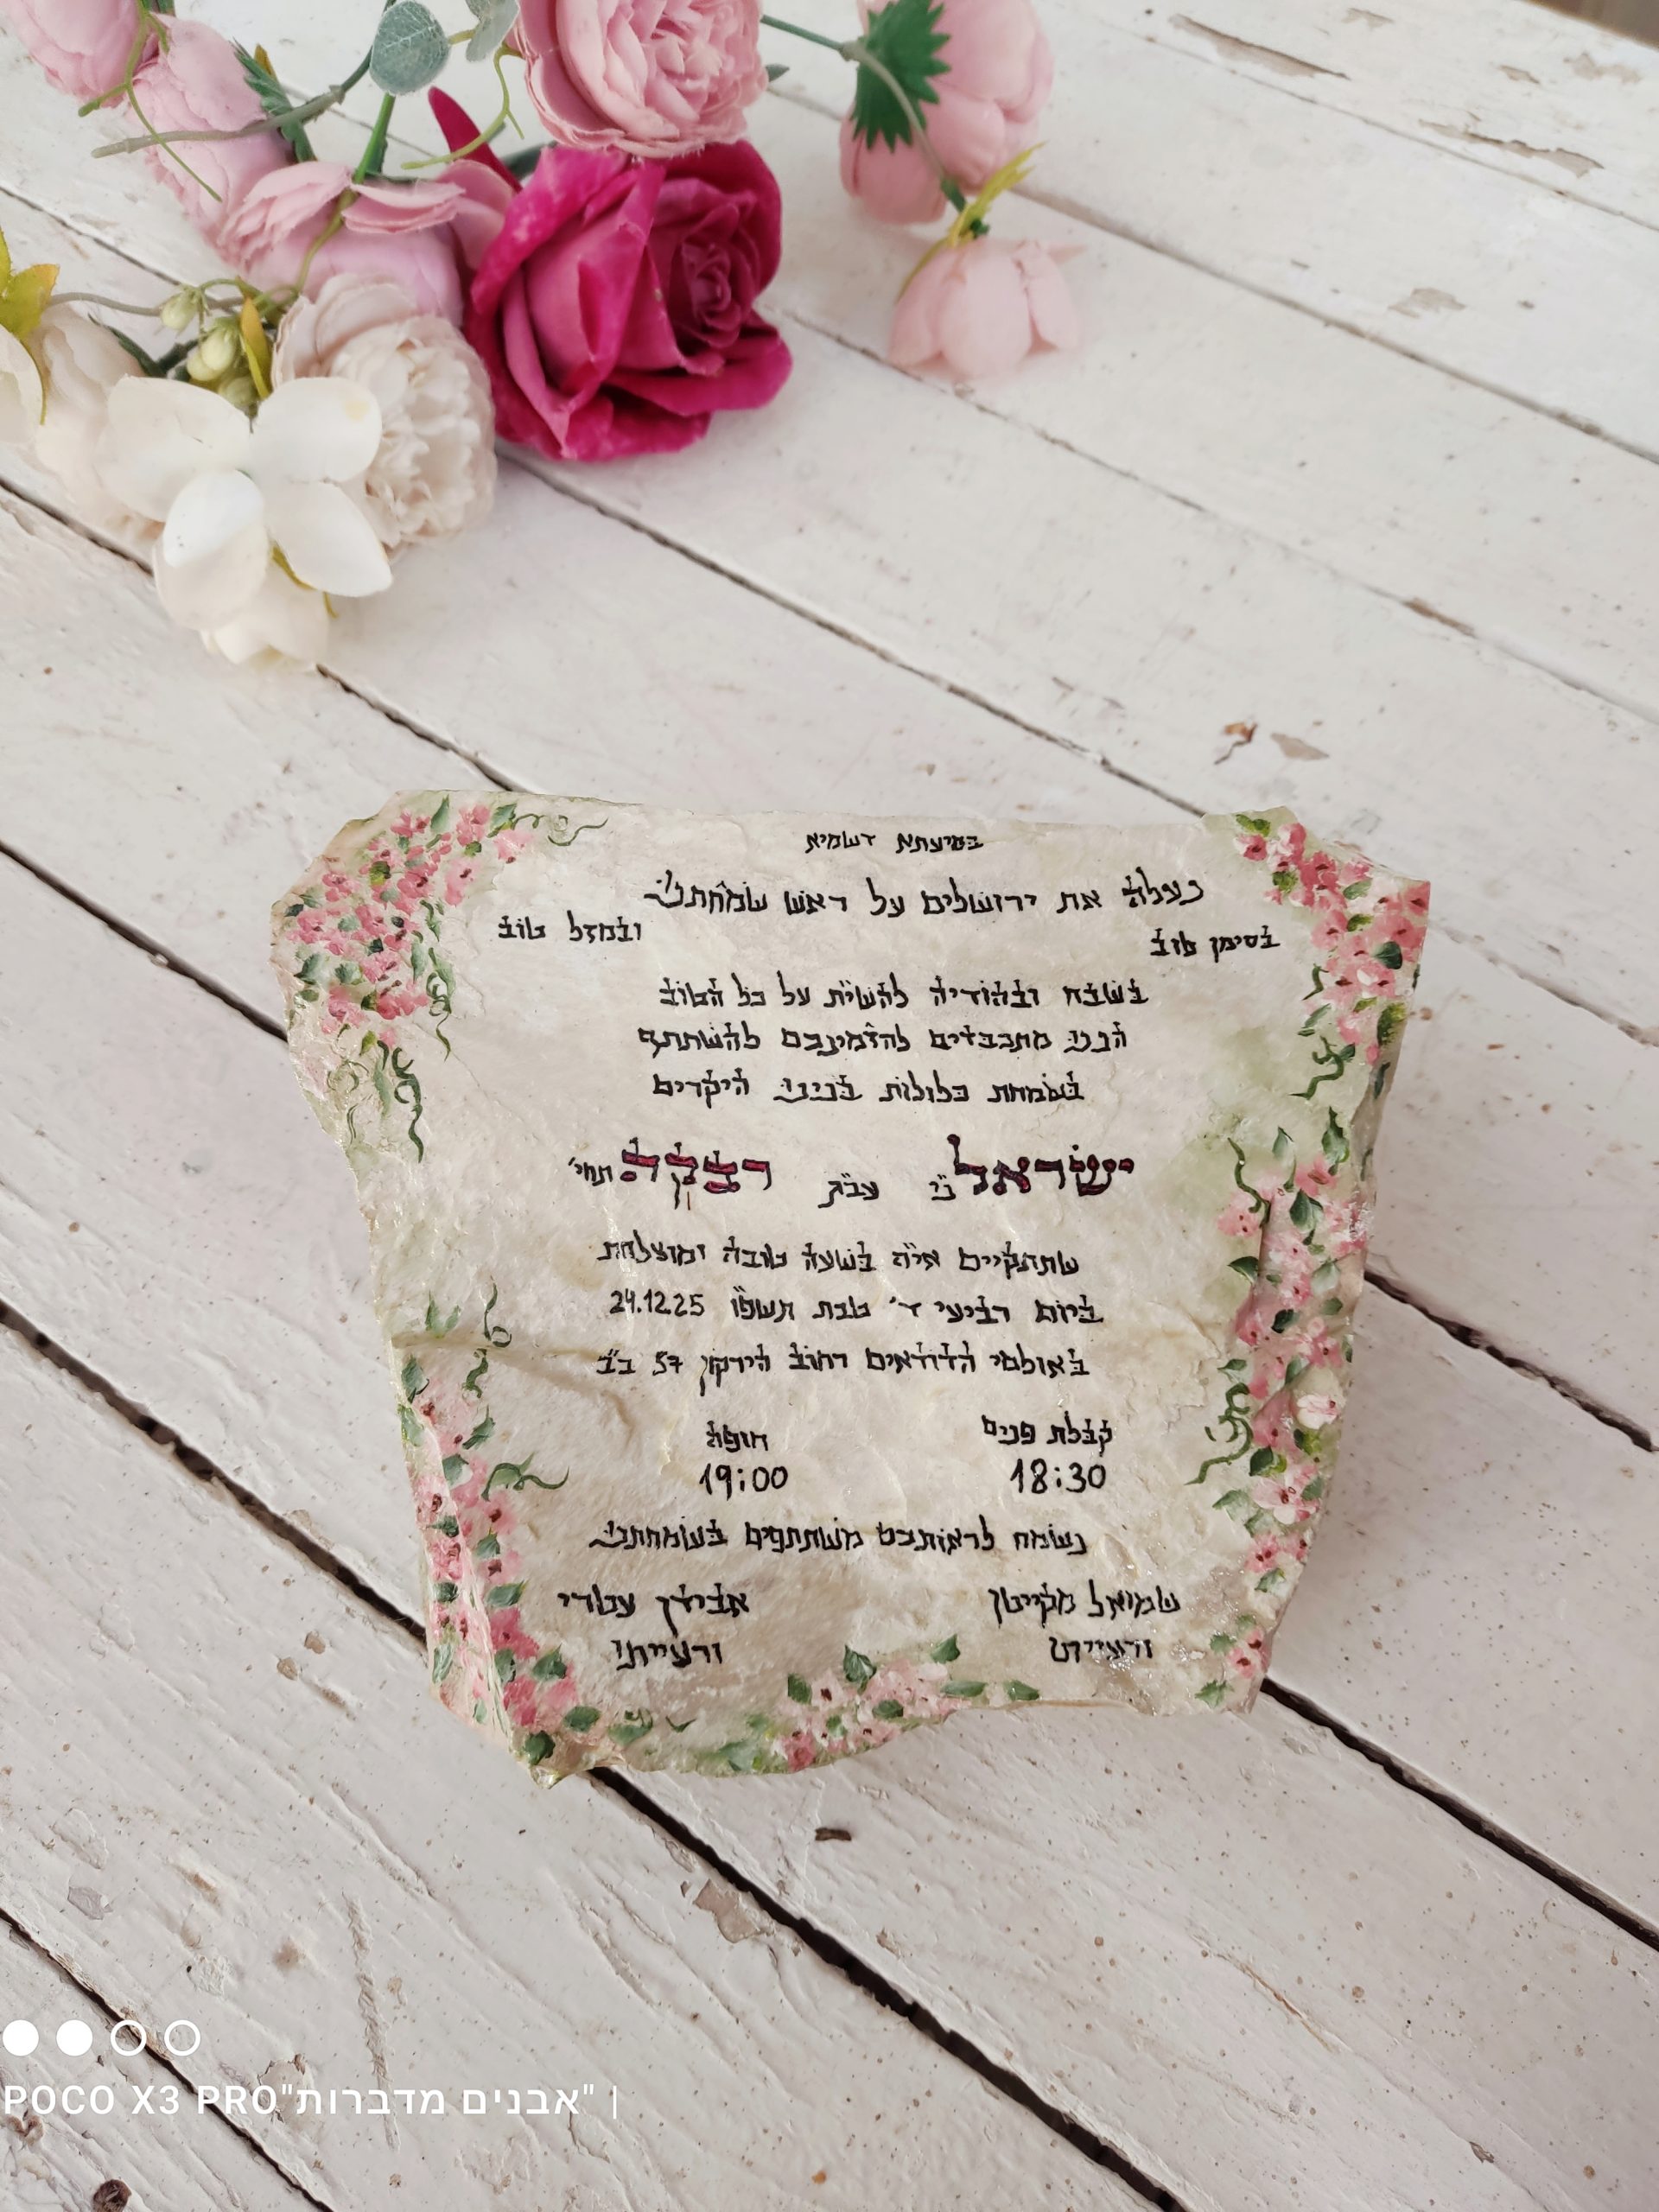 בסיעתא דשמיא
נעלה את ירושלים על ראש שמחתנו
בסימן טוב ובמזל טוב
בשבח ובהודיה להשי"ת על כל הטוב
הננו מתכבדים להזמינכם להשתתף
בשמחת כלולות בנינו היקרים
ישראל ני" עב"ג רבקה תחי'
שתתקיים אי"ה בשעה טובה ומוצלחת
ביום רביעי ד' טבת תשפ"ו 24.12.25
באולמי הדודאים רחוב הירקון 57 ב"ב
קבלת פנים חופה
18:30 19:00
נשמח לראותכם משתתפים בשמחתנו
שמואל אבידן עטרי
ורעייתו ורעייתו
POCO X3 PRO"אבנים מדברות" |